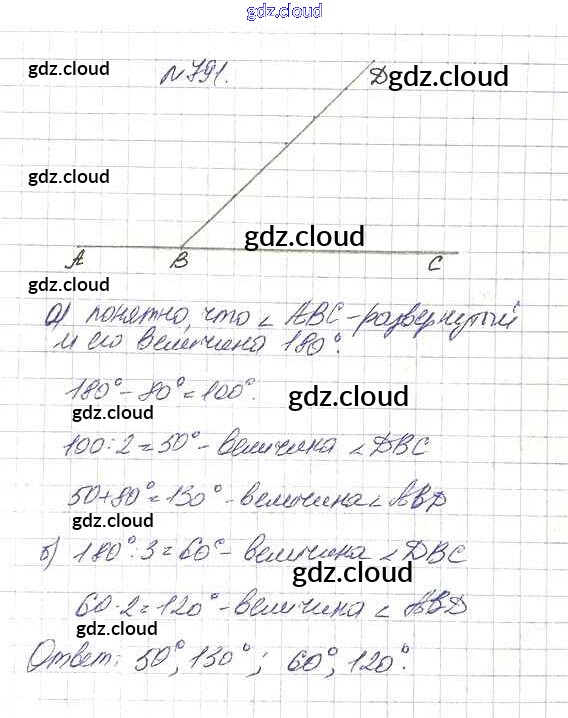 gdz.cloud
gdz.cloud
№791.
D
gdz.cloud
gdz.cloud
gdz.cloud
A B C
gdz.cloud
а) понятно, что ∠ ABC - развернутый
и его величина 180°.
180° - 80° = 100°.
gdz.cloud
gdz.cloud
100:2 = 50° - величина ∠ DBC
50+80° = 130° - величина ∠ ABD
gdz.cloud
б) 180°:3 = 60° - величина ∠ DBC
gdz.cloud
60·2 = 120° - величина ∠ ABD
gdz.cloud
Ответ: 50°, 130°; 60°, 120°.